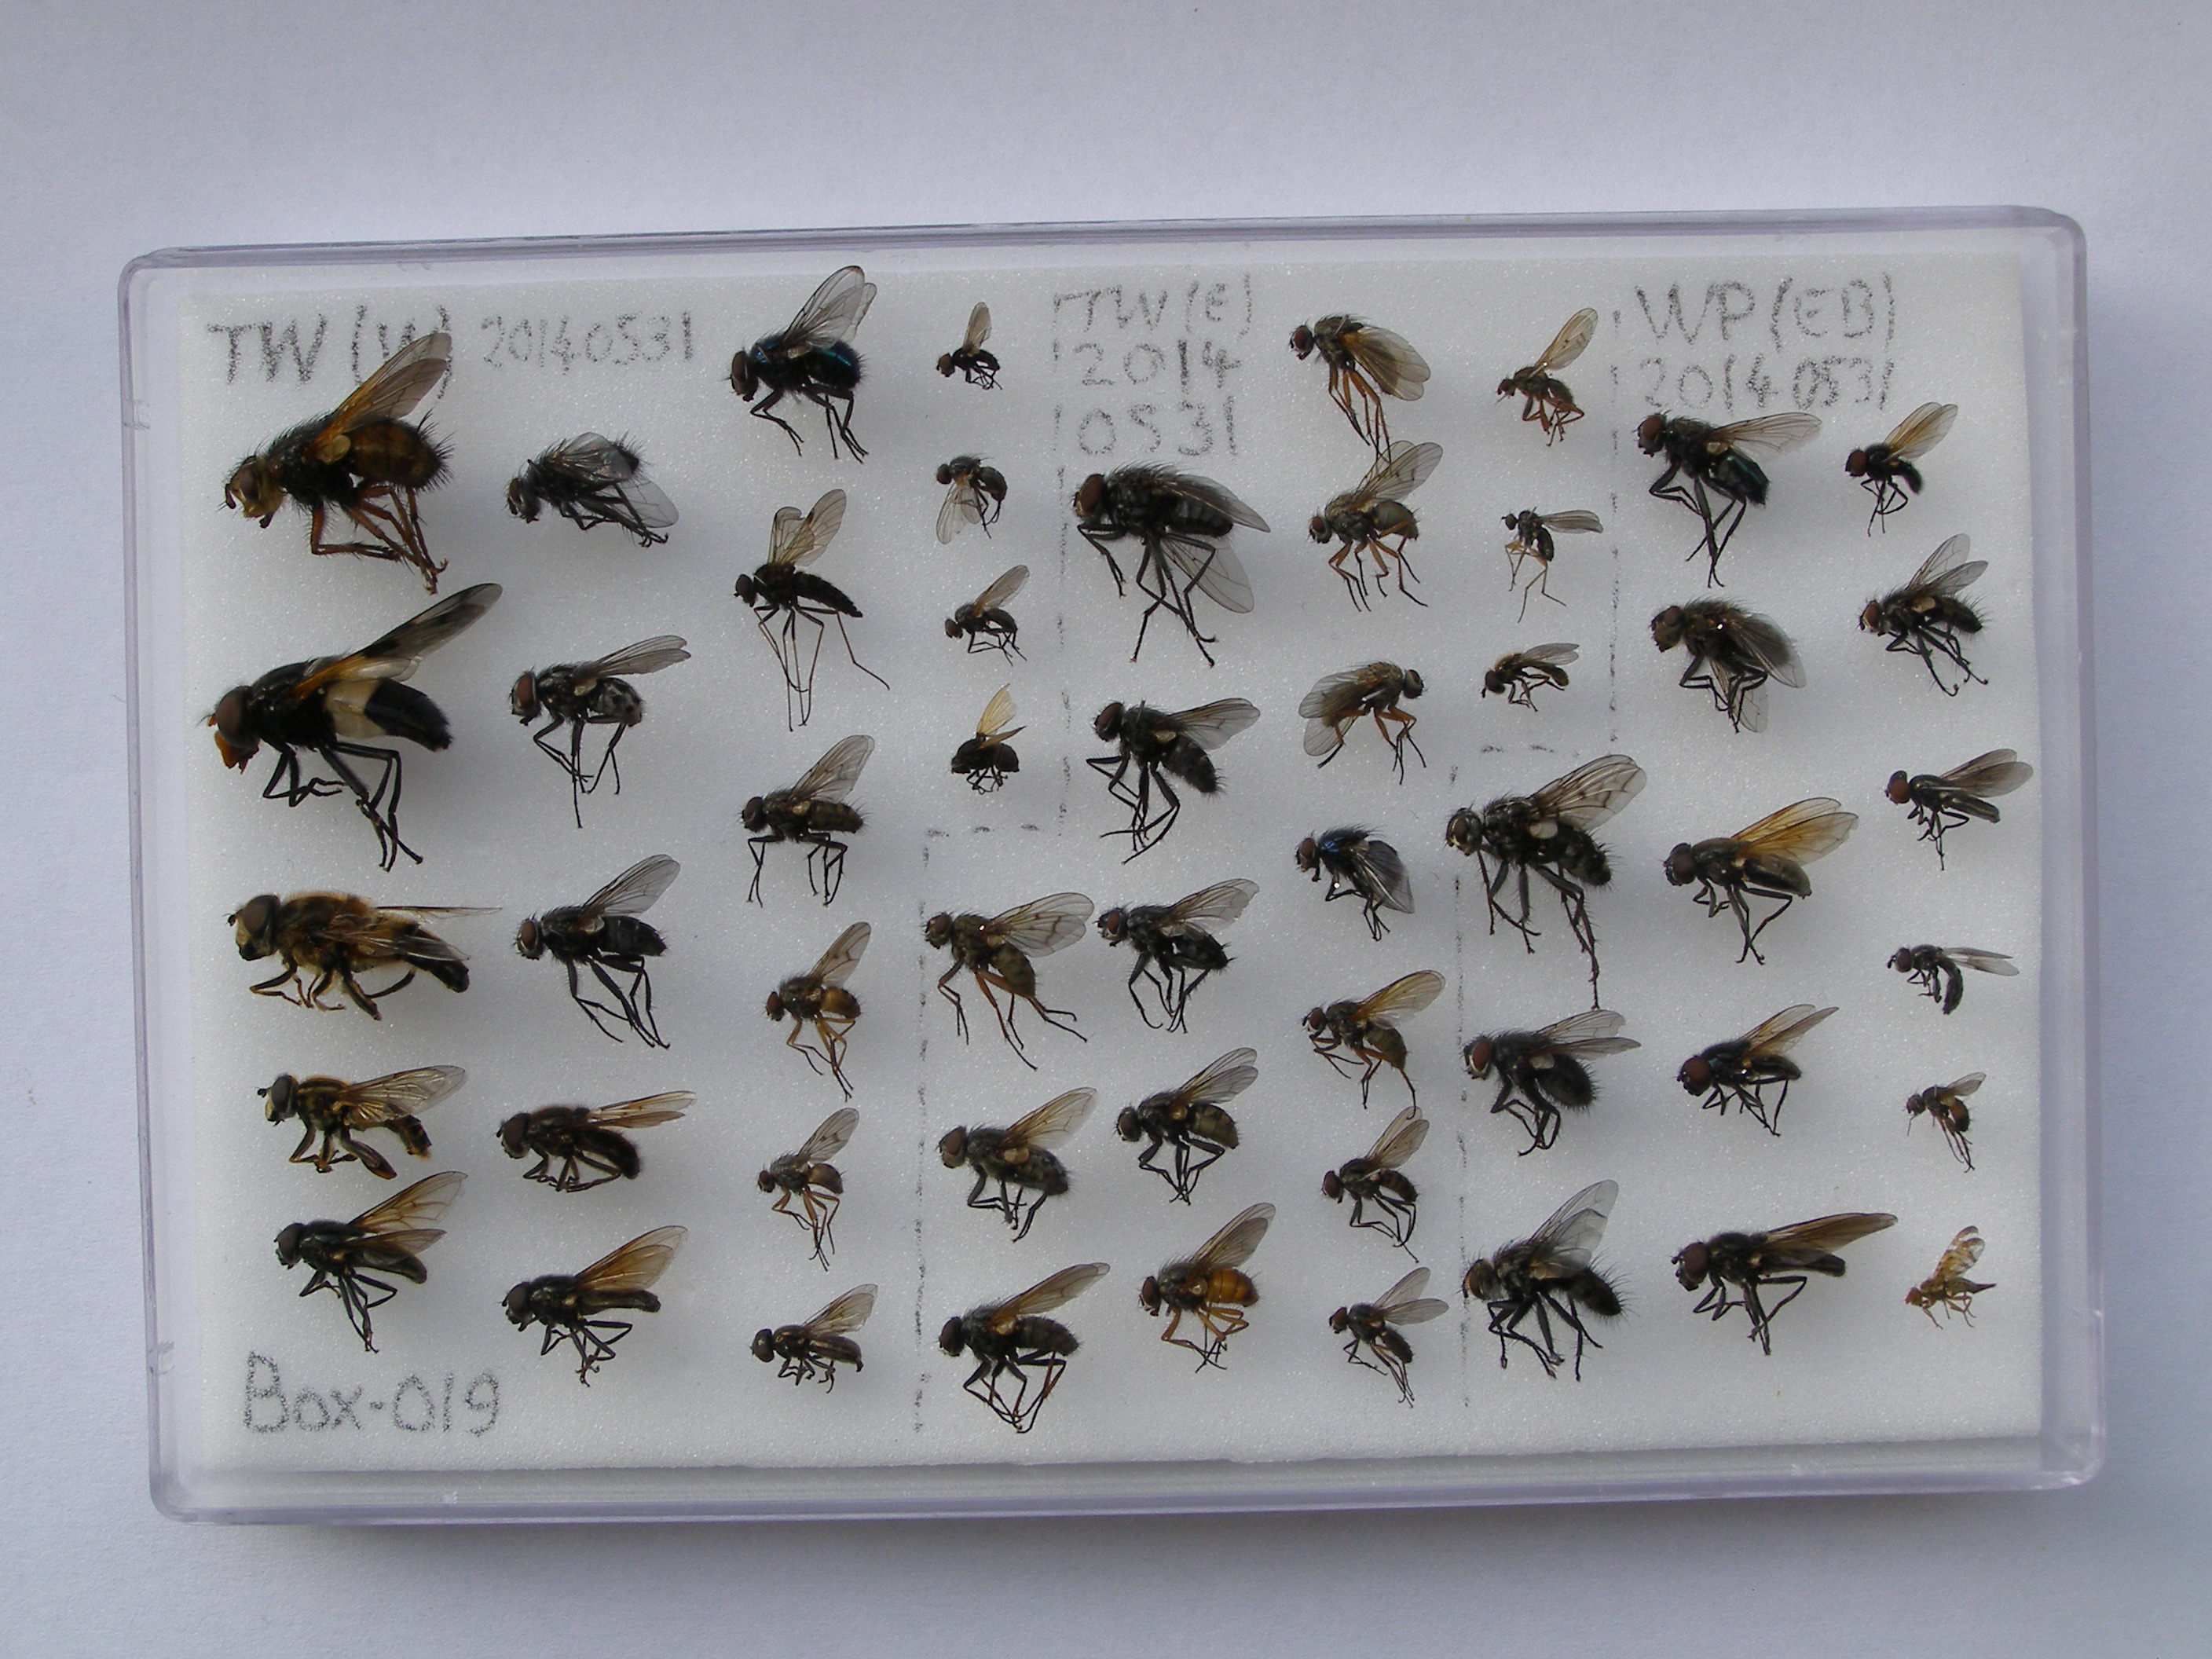 TW (W) 20140531
TW (E)
2014
0531
WP (EB)
20140531
Box-019